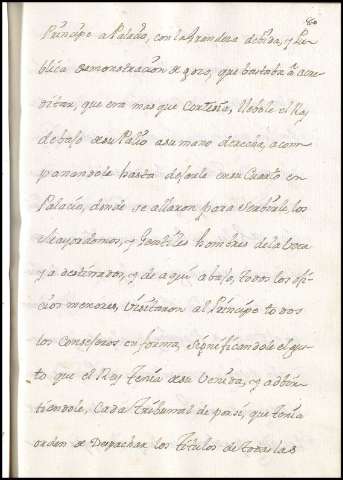 60
Principe a Palacio, con la Grandeza debida, y Pu-
blica demonstracion de gozo, que bastaba à acre-
ditar, que era mas que Cortesia, llebole el Rey
debajo de su Palio a su mano derecha, acom-
pañandole hasta dejarle en su Cuarto en
Palacio, donde se allaron para Serbirle, los
Mayordomos, y Gentiles hombres de la Voca
ya destinados, y de aqui abajo, todos los ofi-
cios menores, Visitaron al Principe todos
los Consejeros en forma, significandole el gus-
to que el Rey Tenia de su Venida, y adbir-
tiendole, Cada Tribunal de por si, que tenia
orden de Despachar los Titulos de todas las